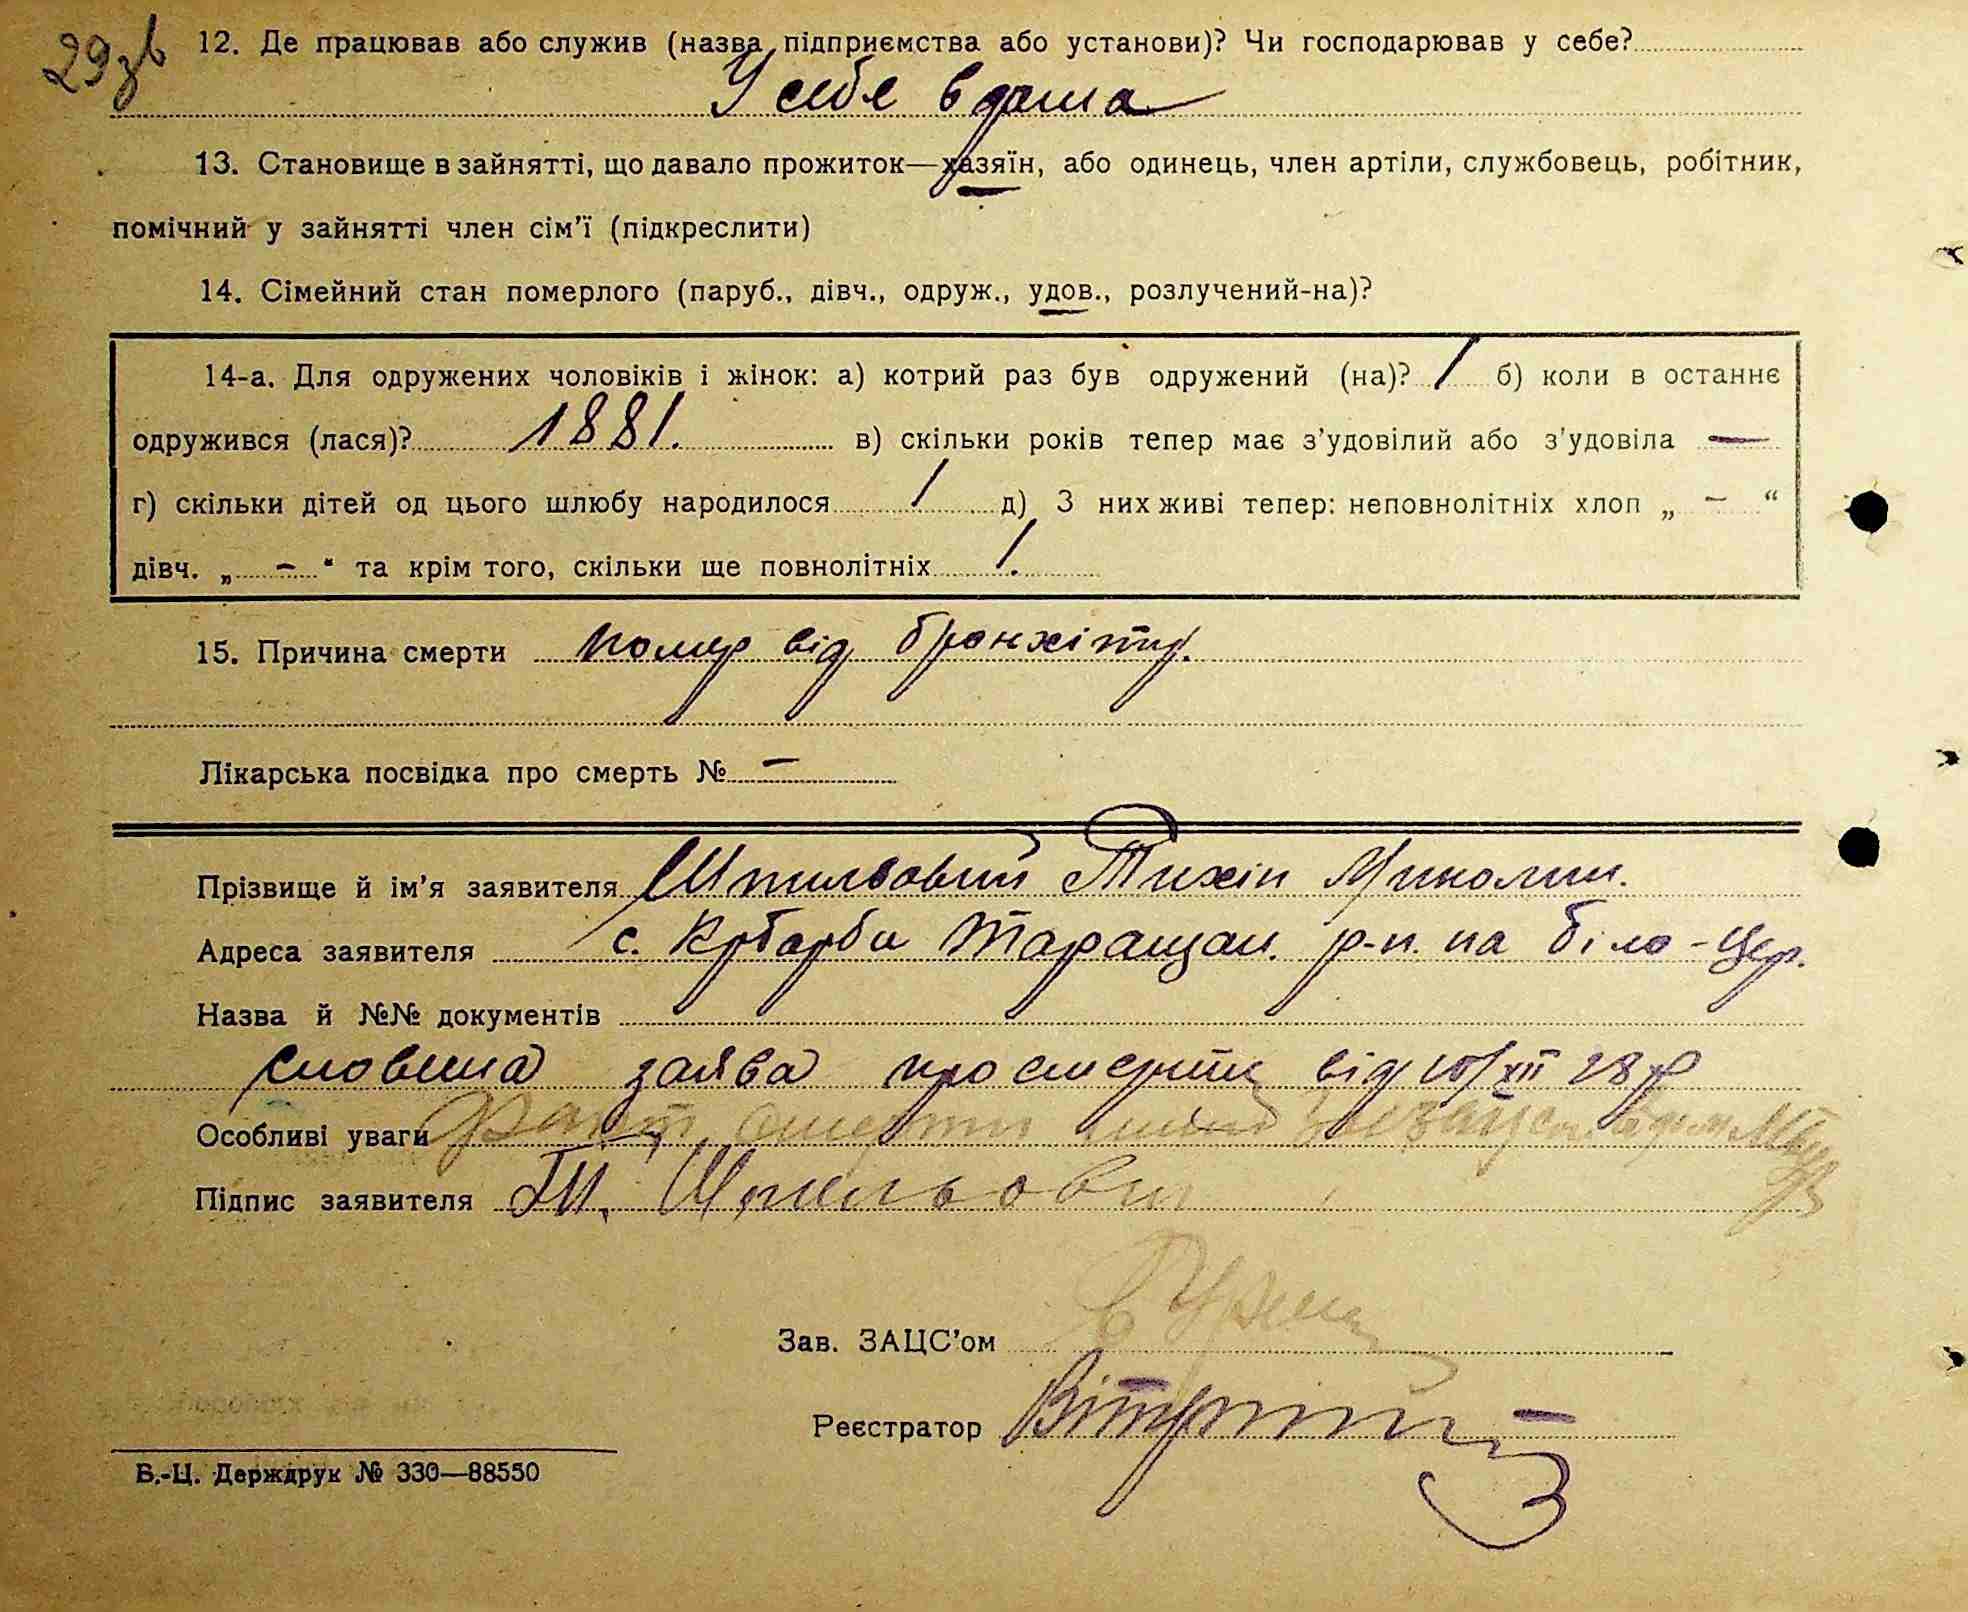 29зв
12. Де працював або служив (назва підприємства або установи)? Чи господарював у себе?
У себе вдома
13. Становище в зайнятті, що давало прожиток—хазяїн, або одинець, член артіли, службовець, робітник,
помічний у зайнятті член сім’ї (підкреслити)
14. Сімейний стан померлого (паруб., дівч., одруж., удов., розлучений-на)?
14-а. Для одружених чоловіків і жінок: а) котрий раз був одружений (на)? 1 б) коли в останнє
одружився (лася)? 1881. в) скільки років тепер має з’удовілий або з’удовіла —
г) скільки дітей од цього шлюбу народилося 1 д) З них живі тепер: неповнолітніх хлоп „ – “
дівч. „ – “ та крім того, скільки ще повнолітніх 1.
15. Причина смерти помер від бронхіту.
Лікарська посвідка про смерть № –
Прізвище й ім’я заявителя Шпильовий Тихін Миколин.
Адреса заявителя с. Таращан. р-н. на Біло-Цер.
Назва й №№ документів
словесна заява про смерть від XII 28 р
Особливі уваги Факт смерти
Підпис заявителя Т. Шпильовий
Зав. ЗАЦС’ом
Реєстратор
Б.-Ц. Держдрук № 330—88550